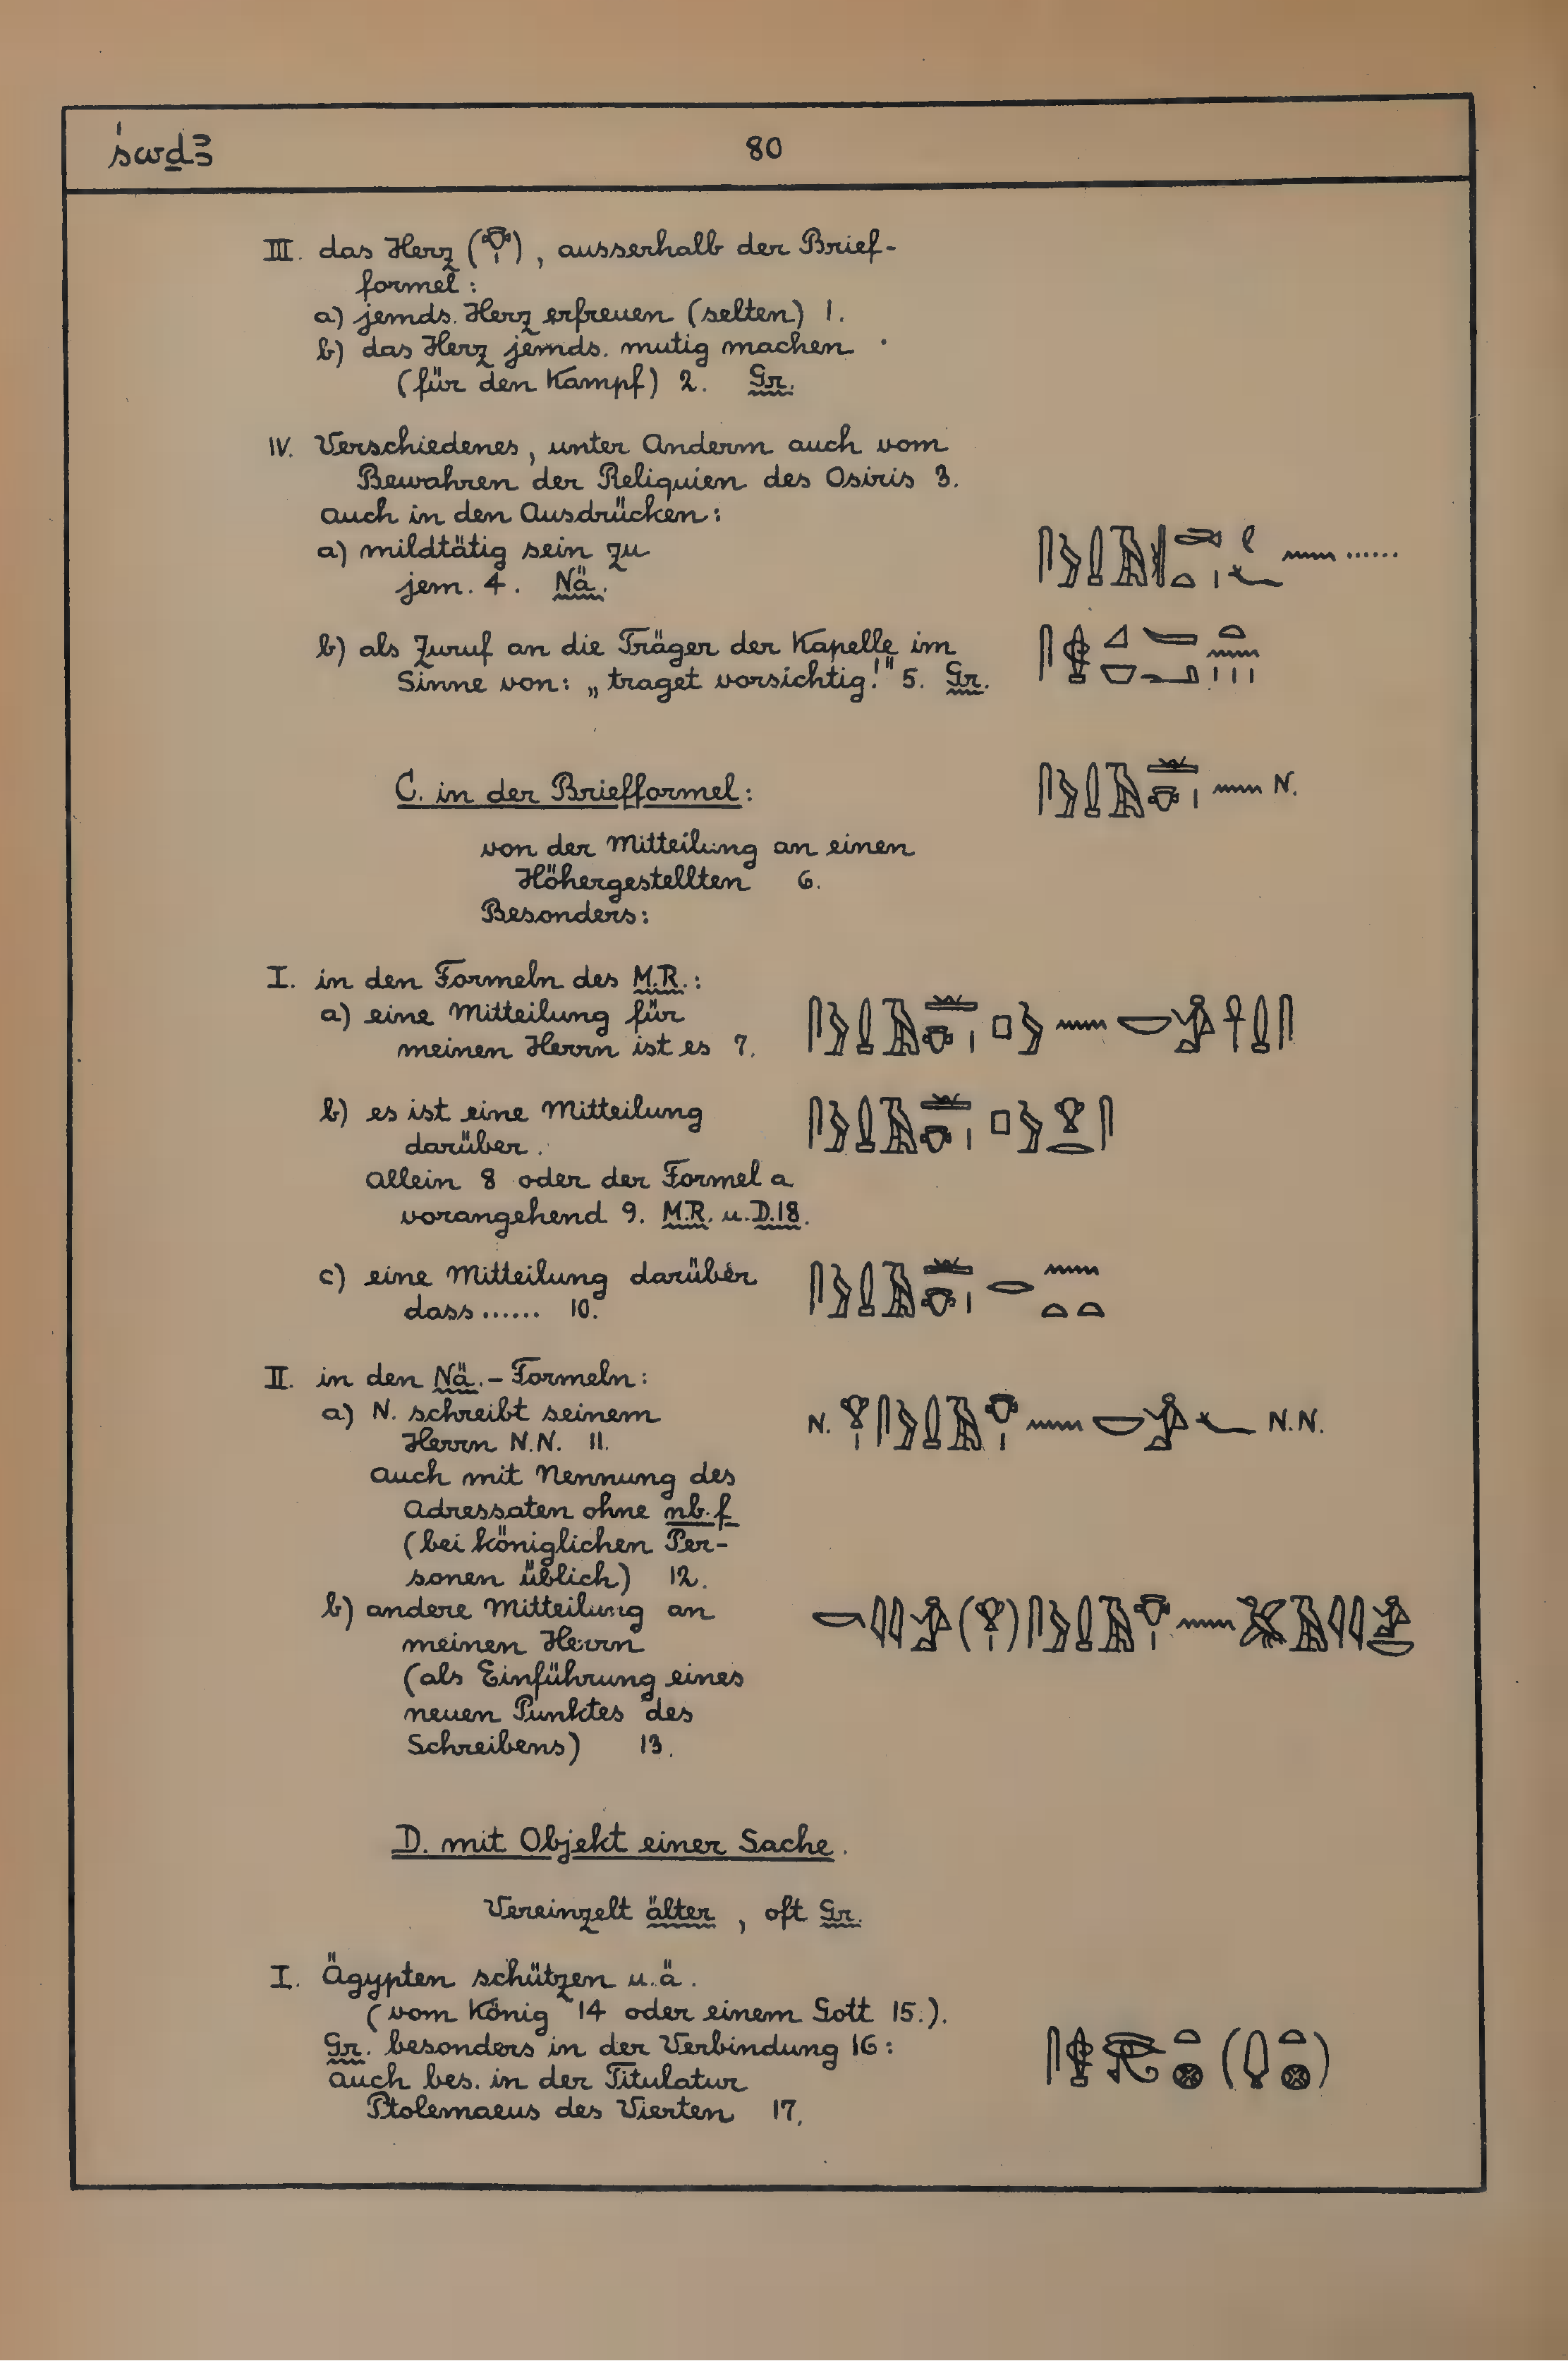 śwḏꜣ
80
III. das Herz (𓄣), ausserhalb der Brief-
formel:
a) jemds. Herz erfreuen (selten) 1.
b) das Herz jemds. mutig machen
(für den Kampf) 2. Gr.
IV. Verschiedenes, unter Anderm auch vom
Bewahren der Reliquien des Osiris 3.
auch in den Ausdrücken:
a) mildtätig sein zu
jem. 4. Nä.
b) als Zuruf an die Träger der Kapelle im
Sinne von: „traget vorsichtig!" 5. Gr.
C. in der Briefformel:
N.
von der Mitteilung an einen
Höhergestellten 6.
Besonders:
I. in den Formeln des M.R.:
a) eine Mitteilung für
meinen Herrn ist es 7.
b) es ist eine Mitteilung
darüber.
Allein 8 oder der Formel a
vorangehend 9. M.R. u. D.18.
c) eine Mitteilung darüber
dass...... 10.
II. in den Nä.-Formeln:
a) N. schreibt seinem
N. N.N.
Herrn N.N. 11.
auch mit Nennung des
Adressaten ohne nb.f
(bei königlichen Per-
sonen üblich) 12.
b) andere Mitteilung an
meinen Herrn
(als Einführung eines
neuen Punktes des
Schreibens) 13.
D. mit Objekt einer Sache.
Vereinzelt älter, oft Gr.
I. Ägypten schützen u.ä.
(vom König 14 oder einem Gott 15.).
Gr. besonders in der Verbindung 16:
auch bes. in der Titulatur
Ptolemaeus des Vierten 17.